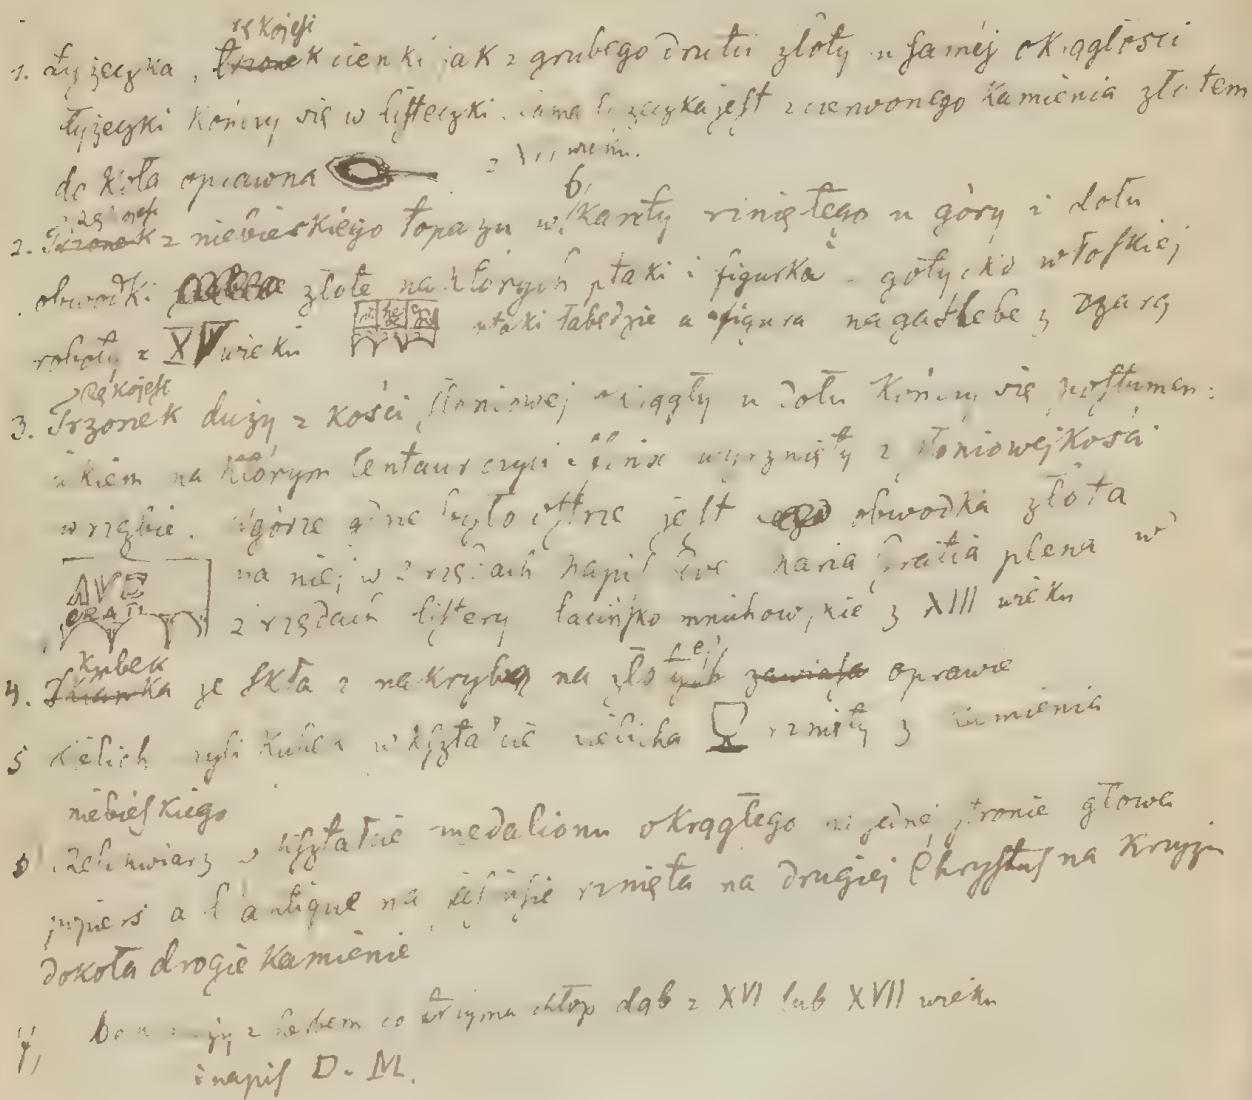 rękojeść
1. Łyżeczka, trzonek cienki jak z grubego drutu złoty u samej okrągłości
łyżeczki kończy się w listeczki. sama łyżeczka jest z czerwonego kamienia złotem
do koła oprawna z wieku.
6,
2. Trzonek z niebieskiego topazu w kanty rżniętego u góry i dołu
obwodki złote na których ptaki i figurka gotycko włoskiej
roboty z XV wieku ptaki łabędzie a figura naga z czarą
rękojeść
3. Trzonek duży z kości słoniowej okrągły u dołu kończy się postumen:
cikiem na którym Centaur czyli sfinx wyrznięty z słoniowej kości
w rzęzbie. u góry gdzie było ostrze jest obwodka złota
AVE
GRATI
na niej w 2 rzędach napis Ave Maria Gratia plena w
2 rzędach litery łacińsko mnichowskie z XIII wieku
Kubek
4. ze szkła z nakrybą na złotej oprawie
5 Kielich czyli Kubek w kształcie kielicha rżnięty z kamienia
niebieskiego
6 w kształcie medalionu okrągłego na jednej stronie głowa
popiersi a l'antique na rżnięta na drugiej Chrystus na Krzyżu
dokoła drogie kamienie
7, z herbem co trzyma chłop dąb z XVI lub XVII wieku
i napis D. M.